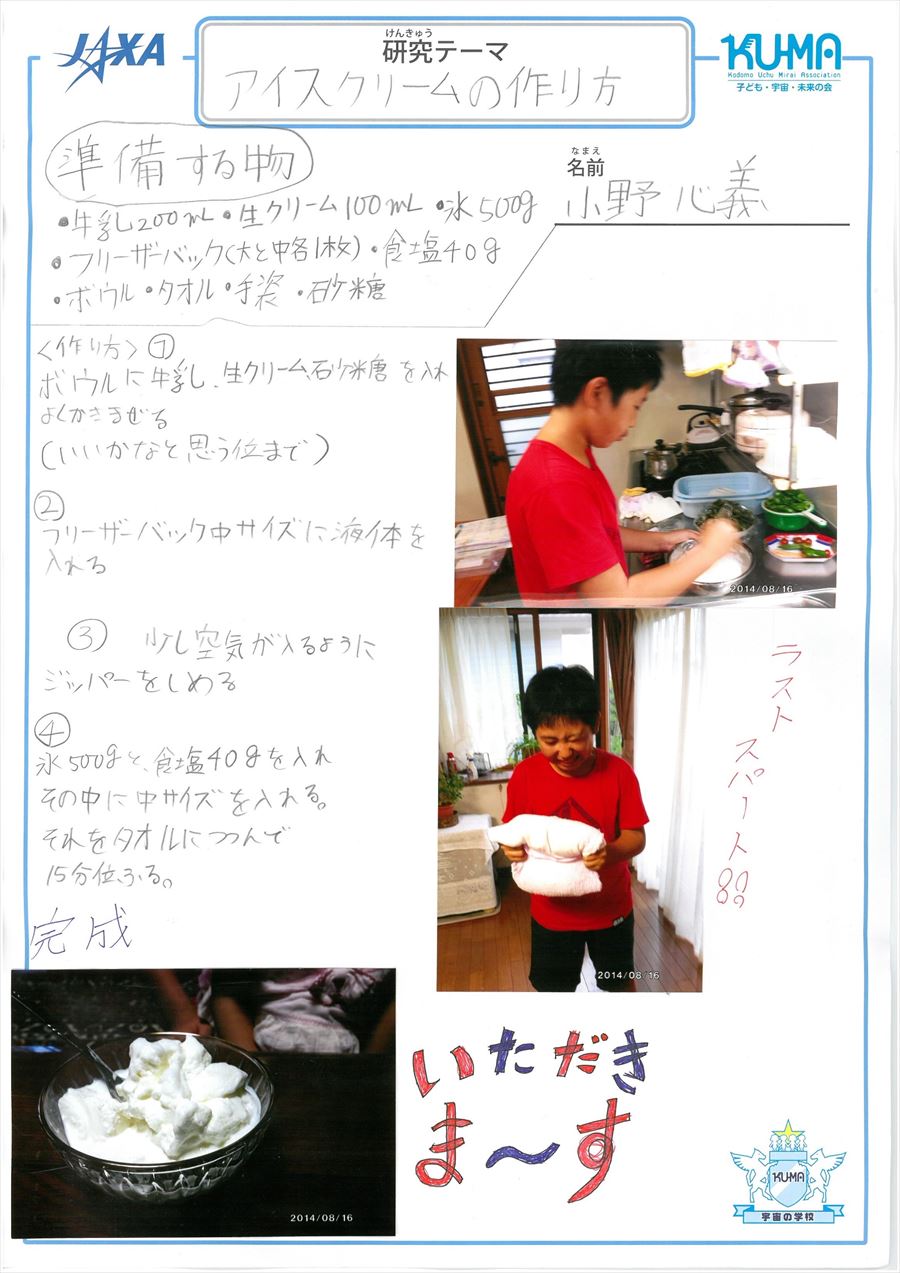 JAXA
けんきゅう
研究テーマ
アイスクリームの作り方
KU-MA
Kodomo Uchu Mirai Association
子ども・宇宙・未来の会
準備する物
なまえ
名前
小野心義
・牛乳200mL・生クリーム100mL・氷500g
・フリーザーバック(大と中各1枚)・食塩40g
・ボウル・タオル・手袋・砂糖
〈作り方〉①
ボウルに牛乳、生クリーム、砂糖を入れ
よくかきまぜる
(いいかなと思う位まで)
②
フリーザーバック中サイズに液体を
入れる
③ 少し空気が入るように
ジッパーをしめる
④
氷500gと、食塩40gを入れ
その中に中サイズを入れる。
それをタオルにつつんで
15分位ふる。
完成
2014/08/16
ラスト
スパート!!
2014/08/16
2014/08/16
いただき
ま〜す
KU-MA
宇宙の学校